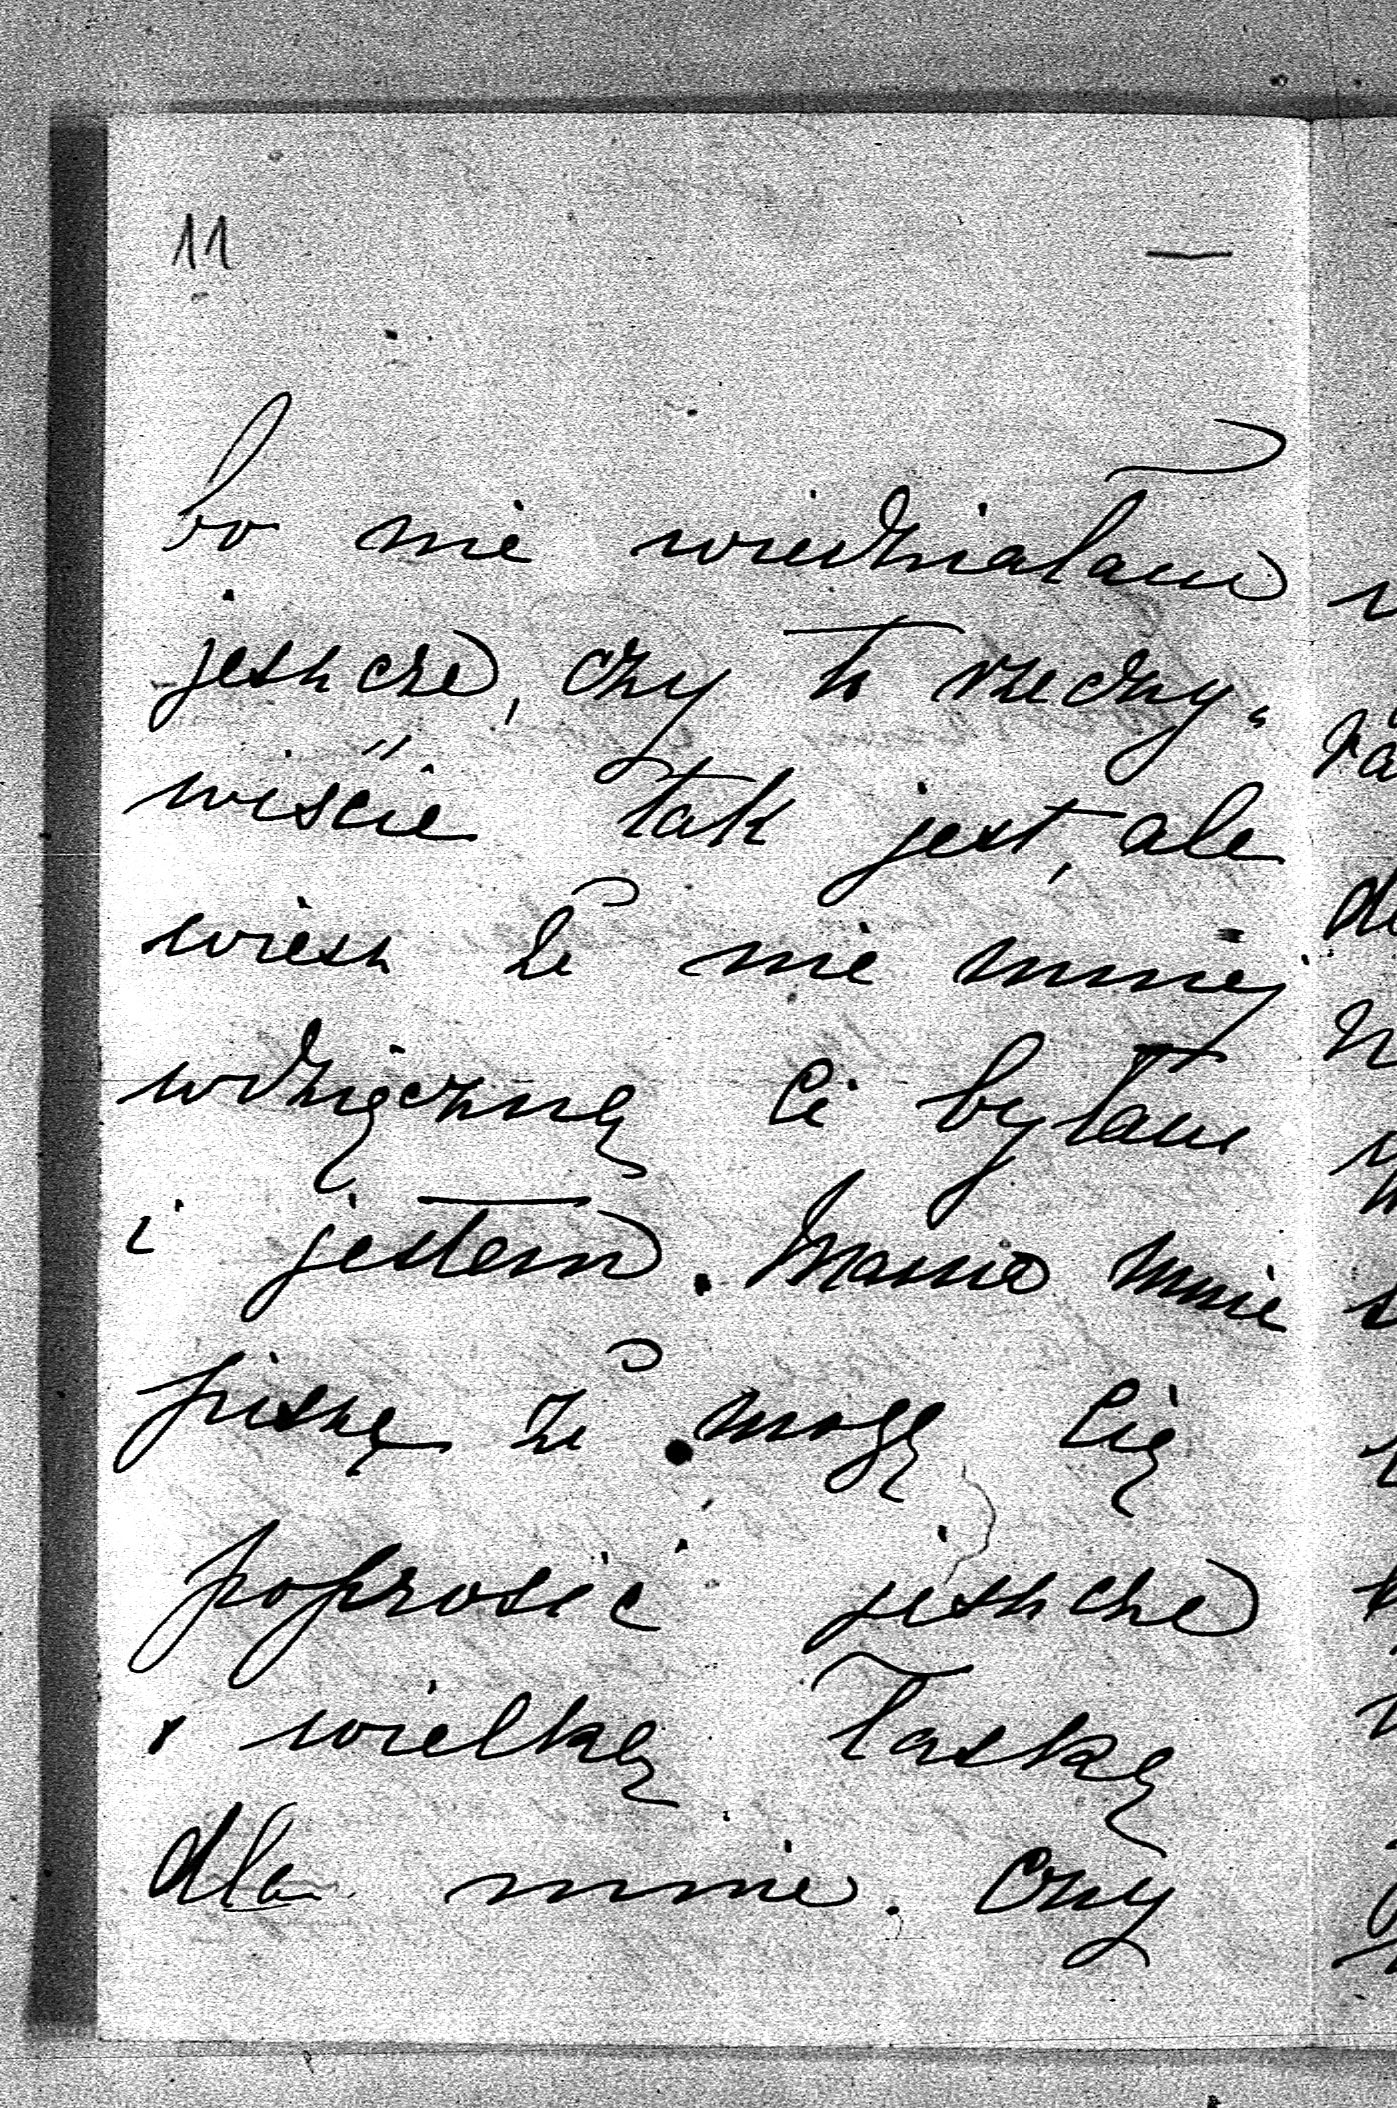 11
bo nie wiedziałam
jeszcze, czy to rzeczy-
wiście tak jest, ale
wiesz że nie mniej
wdzięczną Ci byłam
i jestem. Mamo mnie
piszę że mogę Cię
poprosić jeszcze
o wielką łaskę
dla mnie. Czy